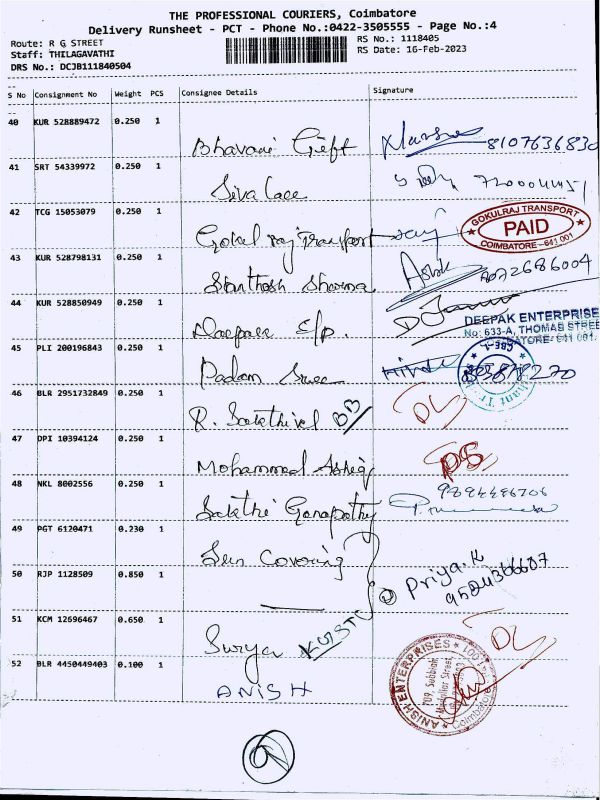 THE PROFESSIONAL COURIERS, Coimbatore
Delivery Runsheet - PCT - Phone No.:0422-3505555 - Page No.:4
Route: R G STREET
Staff: THILAGAVATHI
DRS No.: DCJB111840504
RS No.: 1118405
RS Date: 16-Feb-2023
S No Consignment No Weight PCS Consignee Details Signature
40 KUR 528889472 0.250 1
Bhavani Gift 8107636830
41 SRT 54339972 0.250 1
Siva Lace
42 TCG 15053079 0.250 1
Gokul raj Transport
GOKULRAJ TRANSPORT
PAID
COIMBATORE - 641 001
43 KUR 528798131 0.250 1
Santhosh Sharma Ashok
44 KUR 528850949 0.250 1
E/p.
DEEPAK ENTERPRISE
No: 633-A, THOMAS STREE
641 001.
45 PLI 200196843 0.250 1
Padam Sree
46 BLR 2951732849 0.250 1
R. Sakthivel
47 DPI 10394124 0.250 1
Mohammed Ashiq
48 NKL 8002556 0.250 1
Sakthi Ganapathy
49 PGT 6120471 0.230 1
Sun Covering
50 RJP 1128509 0.850 1
Priya.K
51 KCM 12696467 0.650 1
Surya
52 BLR 4450449403 0.100 1
ANISH
ANISH ENTERPRISES
709, Subbiah
Coimbatore